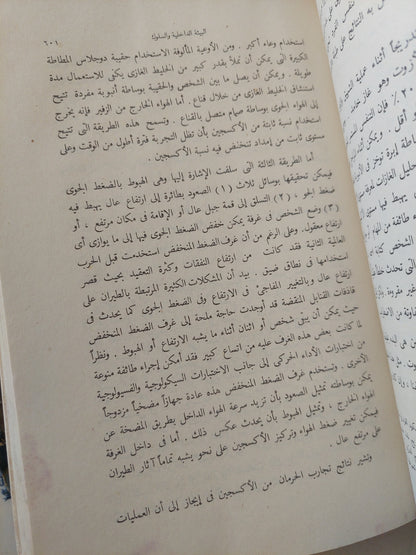 البيئة الداخلية والسلوك
٦٠١
إستخدام وعاء أكبر . ومن الأوعية المألوفة الاستخدام حقيبة دوجلاس المطاطة
الكبيرة التى يمكن أن تملأ بقدر كبير من الخليط الغازى يكفى للاستعمال مدة
طويلة . ويمكن أن يصل ما بين الشخص والحقيبة بوساطة أنبوبة مفردة تتيح
استنشاق الخليط الغازى من خلال قناع . أما الهواء الخارج من الزفير فإنه يخرج
إلى الهواء الجوى بوساطة صمام متصل بالقناع . وتسمح هذه الطريقة التى تتيح
استخدام نسبة ثابتة من الأكسجين بأن تظل التجربة فترة أطول من الوقت وعلى
مستوى ثابت من إمداد تنخفض فيه نسبة الأكسجين .
أما الطريقة الثالثة التى سلفت الإشارة إليها وهى الهبوط بالضغط الجوى
فيمكن تحقيقها بوسائل ثلاث (١) الصعود بطائرة إلى ارتفاع عال يهبط فيه
ضغط الجو ، (٢) التسلق إلى قمة جبل عال أو الإقامة فى مكان مرتفع ، أو
(٣) وضع الشخص فى غرفة يمكن خفض الضغط الجوى فيها إلى ما يوازى أى
ارتفاع معقول . وعلى الرغم من أن غرف الضغط المنخفض استخدمت قبل الحرب
العالمية الثانية فقد كانت من ارتفاع النفقات وكثرة التعقيد بحيث قصر
استخدامها فى نطاق ضيق . بيد أن المشكلات الكثيرة المرتبطة بالطيران على
ارتفاع عال وبالتغيير المفاجئ فى الارتفاع وفى الضغط الجوى كما يحدث فى
قاذفات القنابل المنقضة قد أوجدت حاجة ملحة إلى غرف الضغط المنخفض
حيث يمكن أن يبقى شخص أو اثنان أثناء ما يشبه الارتفاع أو الهبوط . ونظراً
لما كانت بعض هذه الغرف عليه من اتساع كبير فقد أمكن إجراء طائفة منوعة
من اختبارات الأداء الحركى إلى جانب الاختبارات السيكولوجية والفسيولوجية
الأخرى . وتستخدم غرف الضغط المنخفض هذه عادة جهازاً مضخياً مزدوجاً
يمكن بوساطته تمثيل الصعود بأن تزيد سرعة الهواء الداخل بطريق المضخة عن
الهواء الخارج ، وتمثيل الهبوط بأن يحدث عكس ذلك . أما فى داخل الغرفة
فيمكن تغيير ضغط الهواء وتركيز الأكسجين على نحو يشبه تماماً آثار الطيران
على مرتفع عال .
وتشير نتائج تجارب الحرمان من الأكسجين فى إيجاز إلى أن العمليات